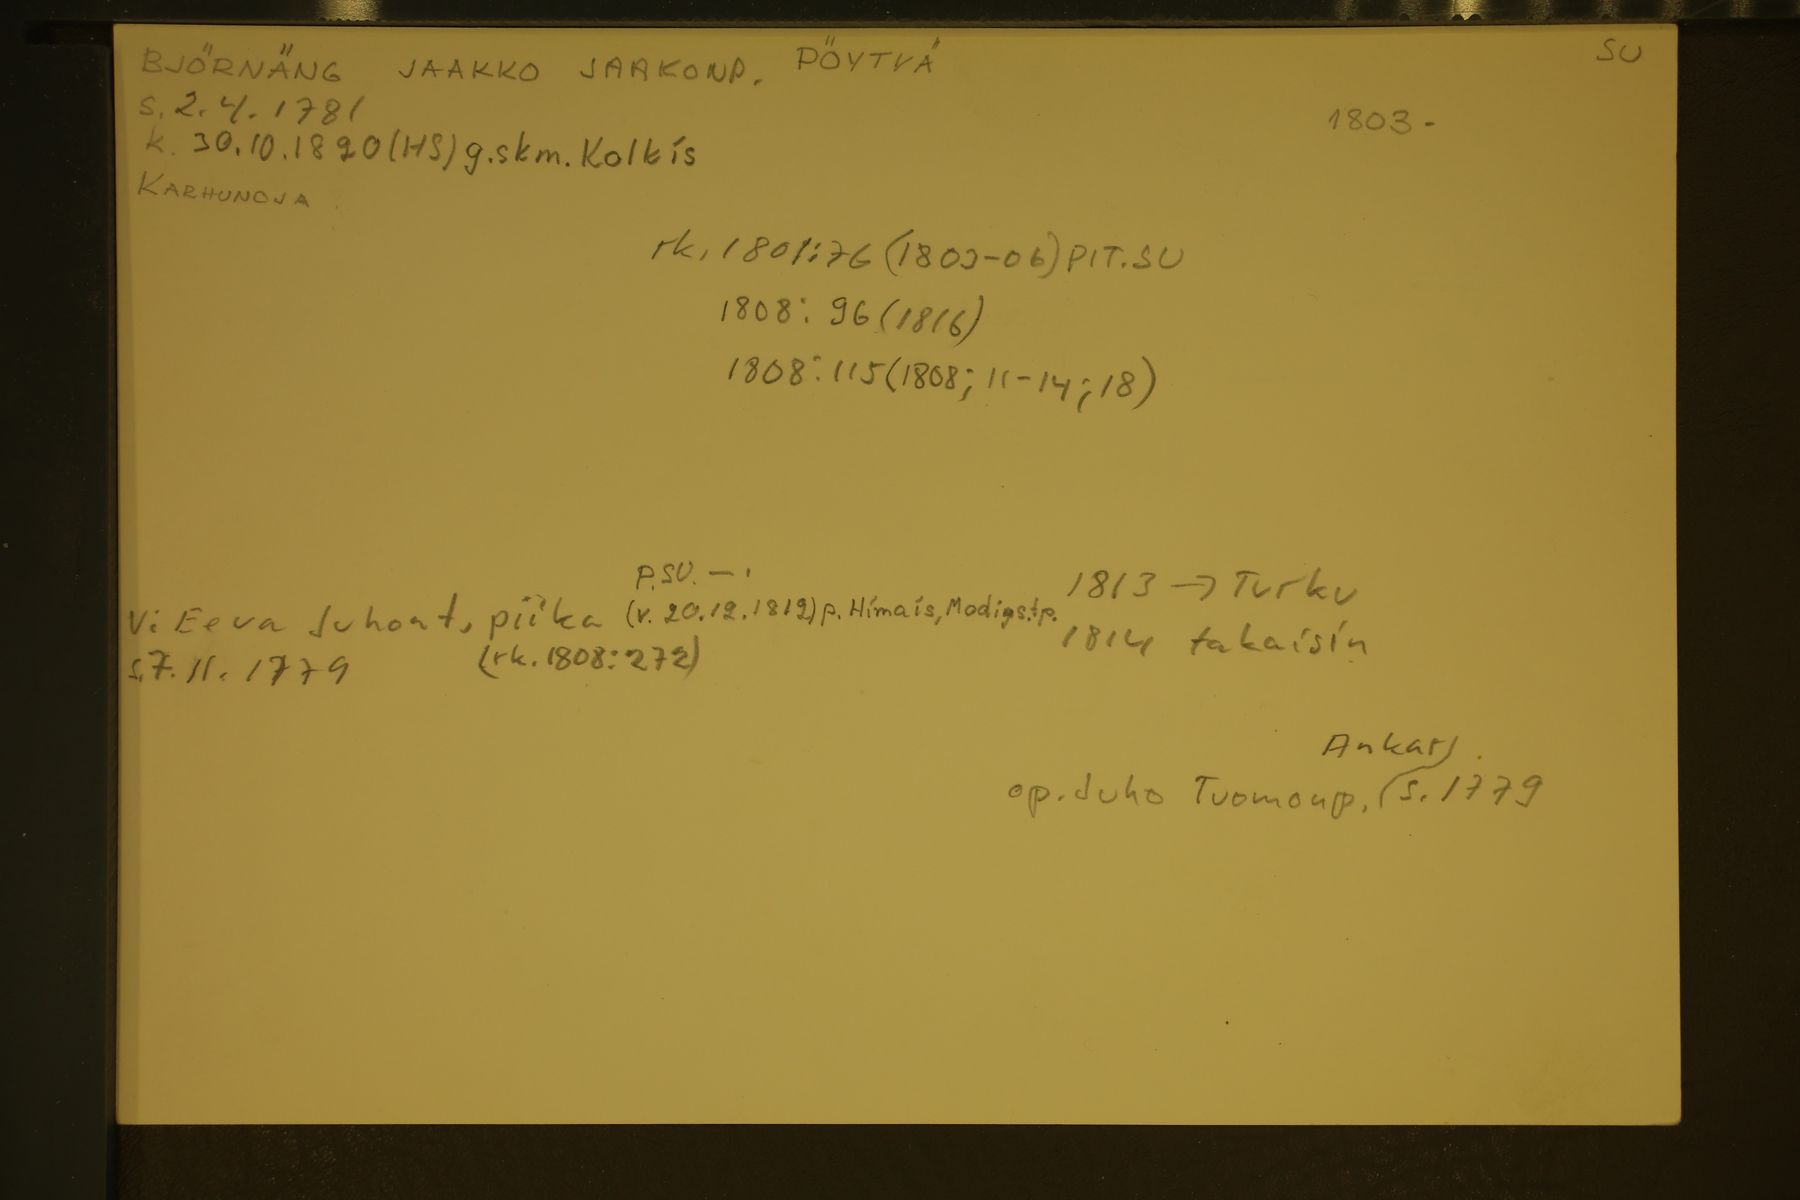 BJÖRNÄNG JAAKKO JAAKONP. PÖYTYÄ SU
s. 2.4.1781 1803-
k. 30.10.1820 (HS) g.skm. Kolkis
KARHUNOJA
rk. 1801:76 (1803-06) PIT.SU
1808: 96 (1816)
1808: 115 (1808; 11-14; 18)
P.SU. 1813 → Turku
Vi Eeva Juhont, piika (v. 20.12.1812) p. Himais, Modigst.p.
1814 takaisin
s. 7.11.1779 (rk. 1808:272)
Ankar
op. Juho Tuomonp. s. 1779